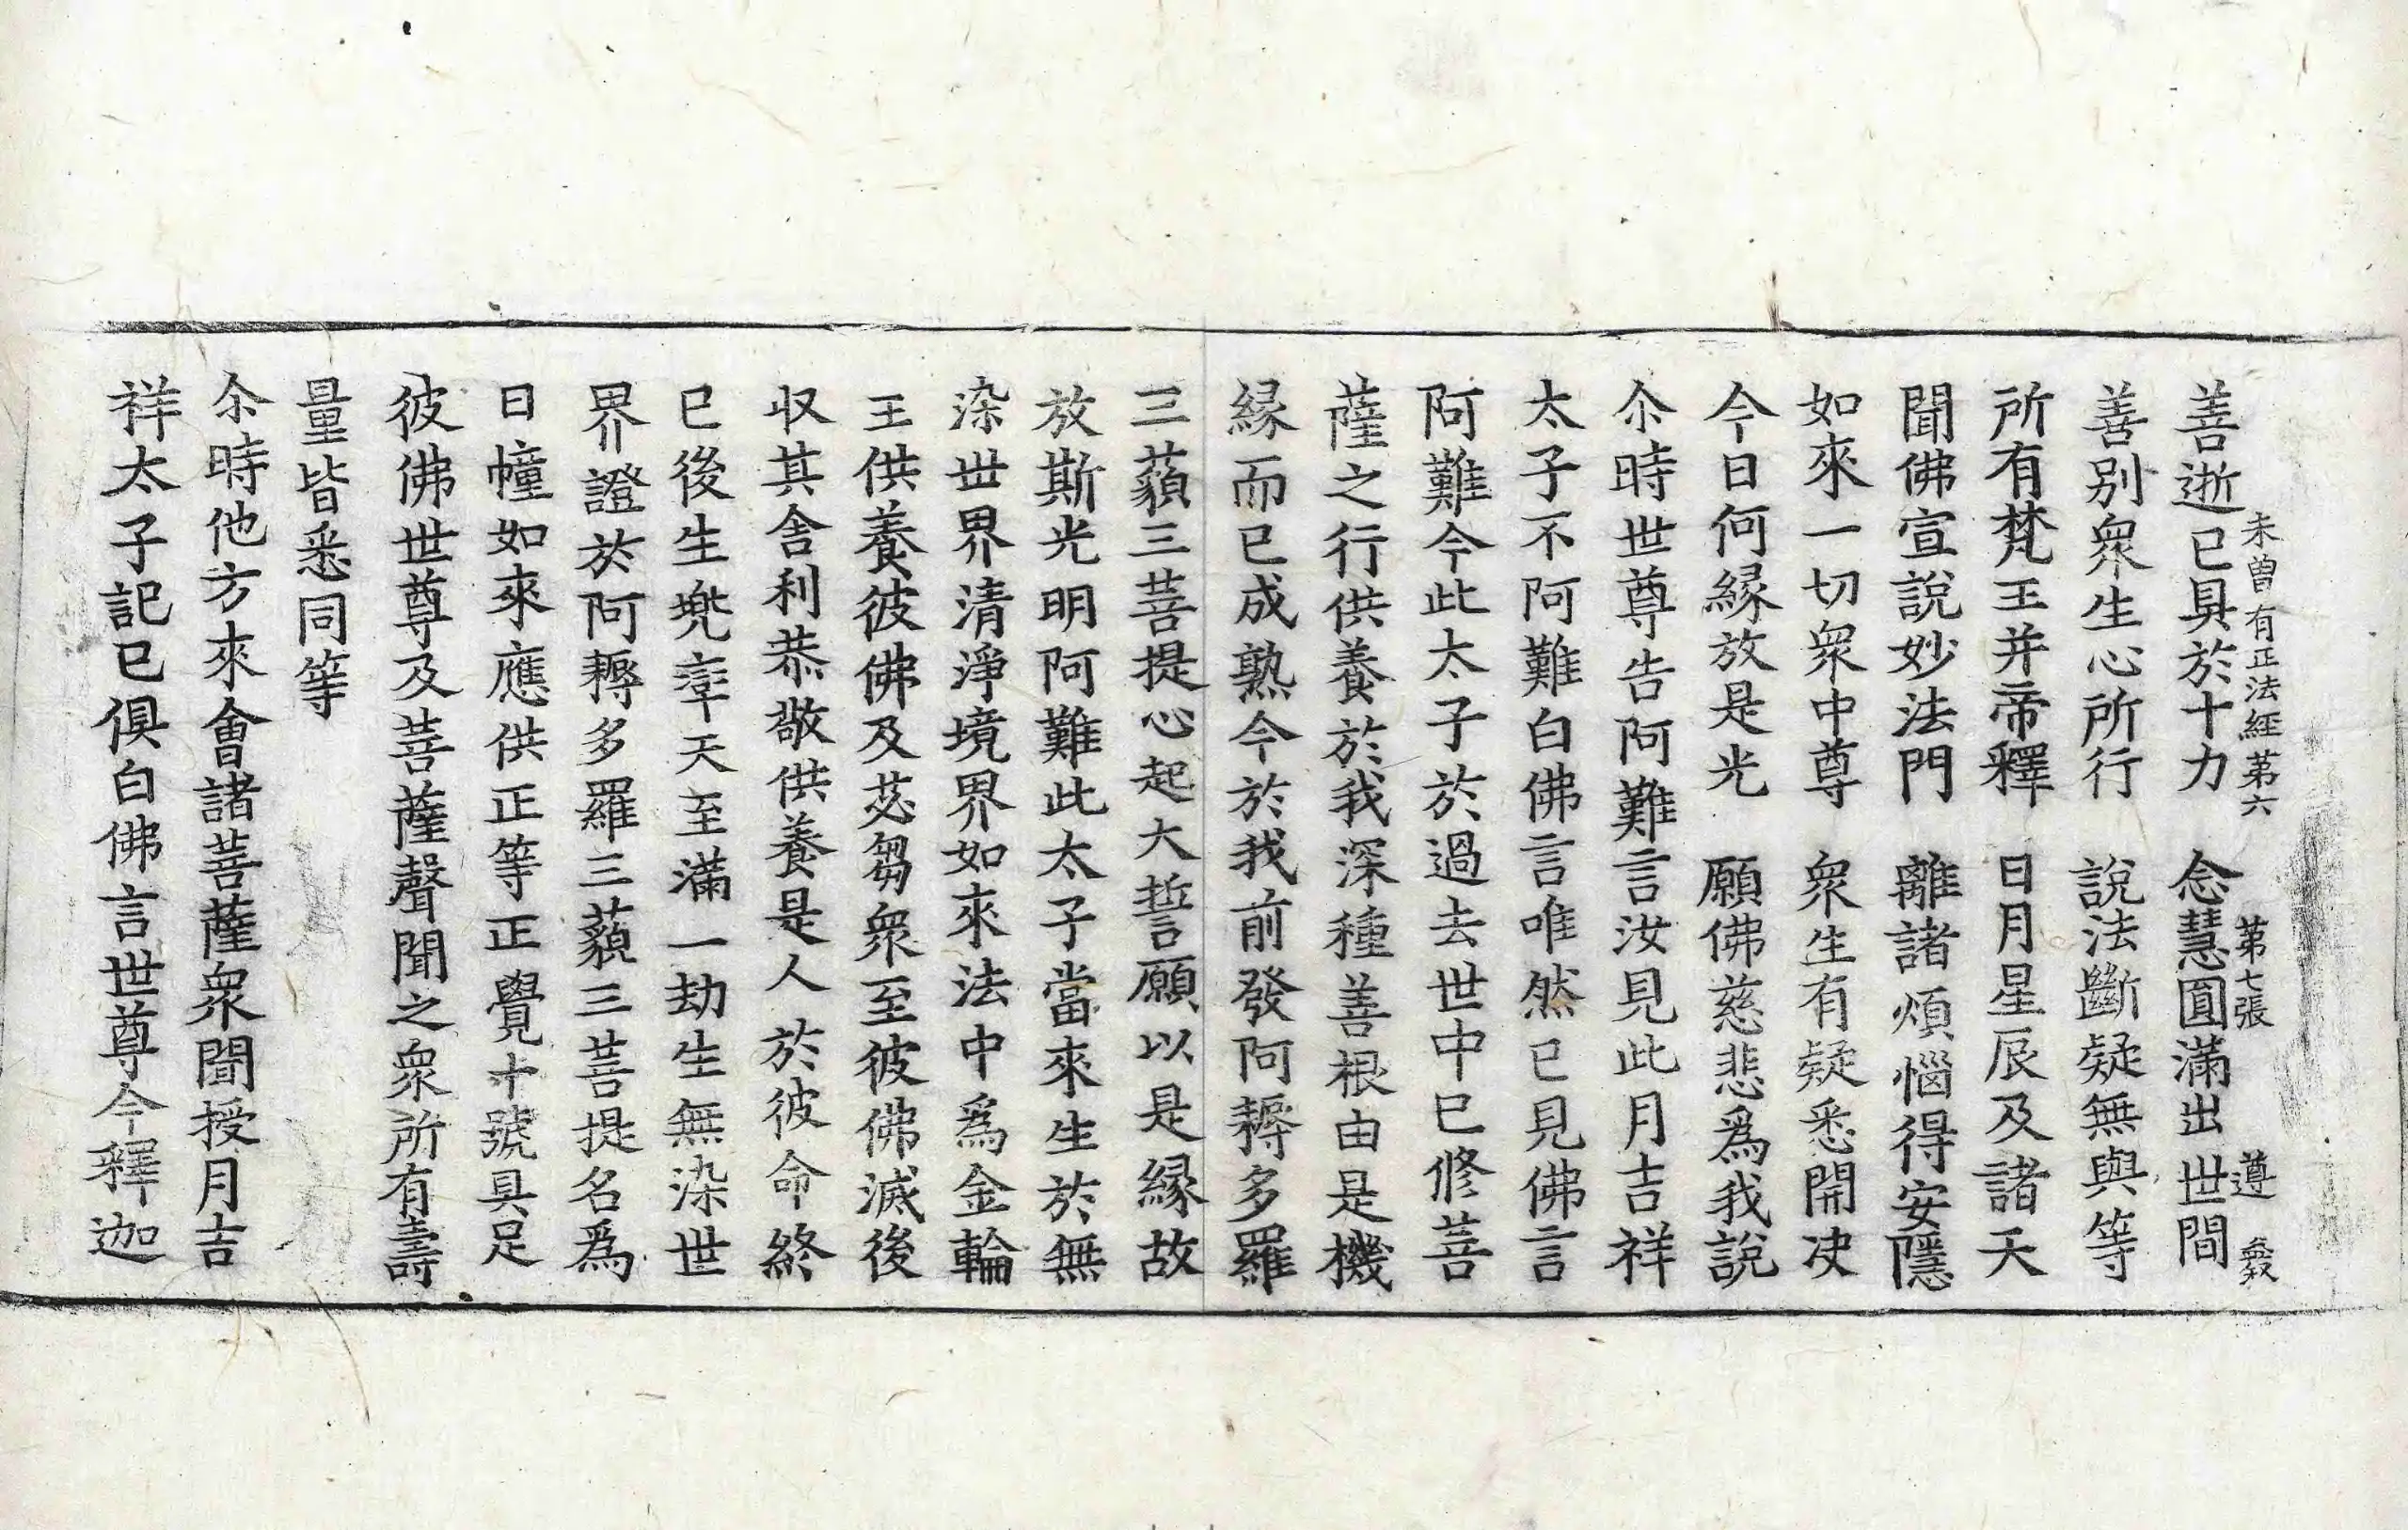 未曾有正法經第六 第七張 遵
善逝已具於十力 念慧圓滿出世間
善別衆生心所行 說法斷疑無與等
所有梵王并帝釋 日月星辰及諸天
聞佛宣說妙法門 離諸煩惱得安隱
如來一切衆中尊 衆生有疑悉開決
今日何緣放是光 願佛慈悲爲我說
尒時世尊告阿難言汝見此月吉祥
太子不阿難白佛言唯然已見佛言
阿難今此太子於過去世中已修菩
薩之行供養於我深種善根由是機
緣而已成熟今於我前發阿耨多羅
三藐三菩提心起大誓願以是緣故
放斯光明阿難此太子當來生於無
染世界清淨境界如來法中爲金輪
王供養彼佛及苾芻衆至彼佛滅後
収其舍利恭敬供養是人於彼命終
已後生兠率天至滿一劫生無染世
界證於阿耨多羅三藐三菩提名爲
日幢如來應供正等正覺十號具足
彼佛世尊及菩薩聲聞之衆所有壽
量皆悉同等
尒時他方來會諸菩薩衆聞授月吉
祥太子記已俱白佛言世尊今釋迦